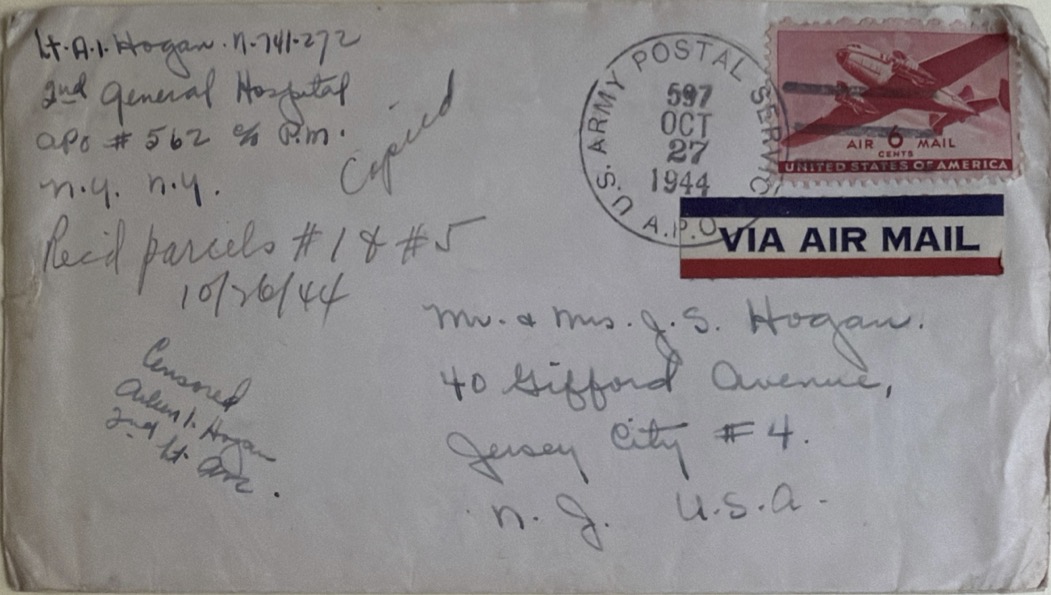 Lt. A.I. Hogan. N-741-272
2nd General Hospital
APO # 562 c/o P.M.
N.Y. N.Y.
Copied
Rec'd parcels #1 & #5
10/26/44
Censored
I. Hogan
2nd Lt. ANC.
U.S. ARMY POSTAL SERVICE
A.P.O.
597
OCT
27
1944
AIR 6 MAIL
CENTS
UNITED STATES OF AMERICA
VIA AIR MAIL
Mr. & Mrs. J.S. Hogan.
40 Gifford Avenue,
Jersey City #4.
N.J. U.S.A.